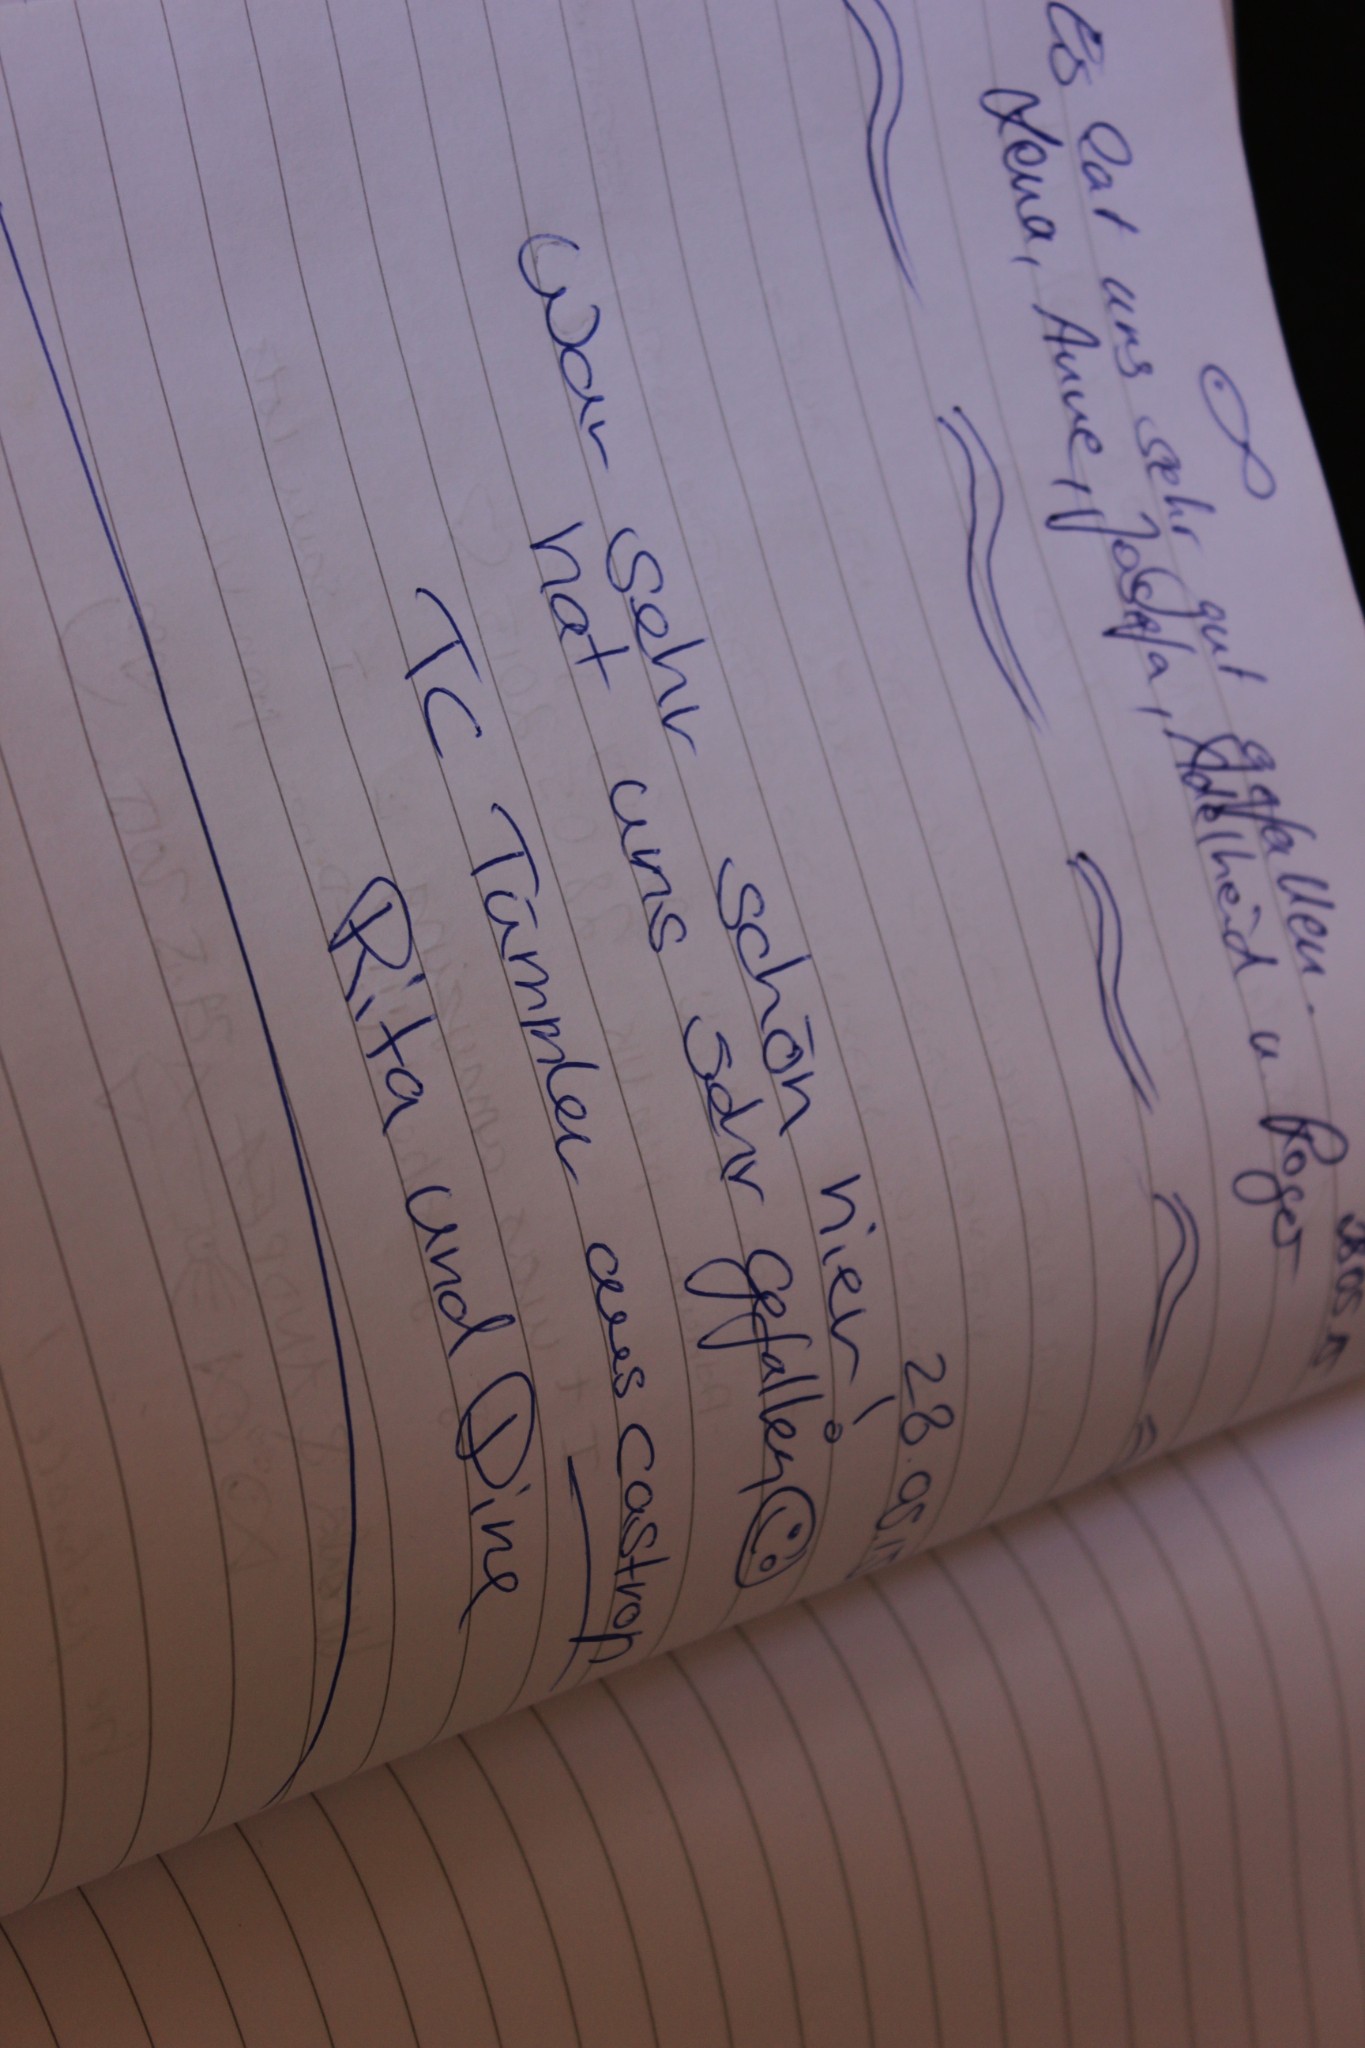 Es hat uns sehr gut gefallen.
Lena, Anne, Josefa, Adelheid u. Roger
28.05.
War sehr schön hier!
hat uns sehr gefallen
TC Tümmler aus Castrop
Rita und Dine